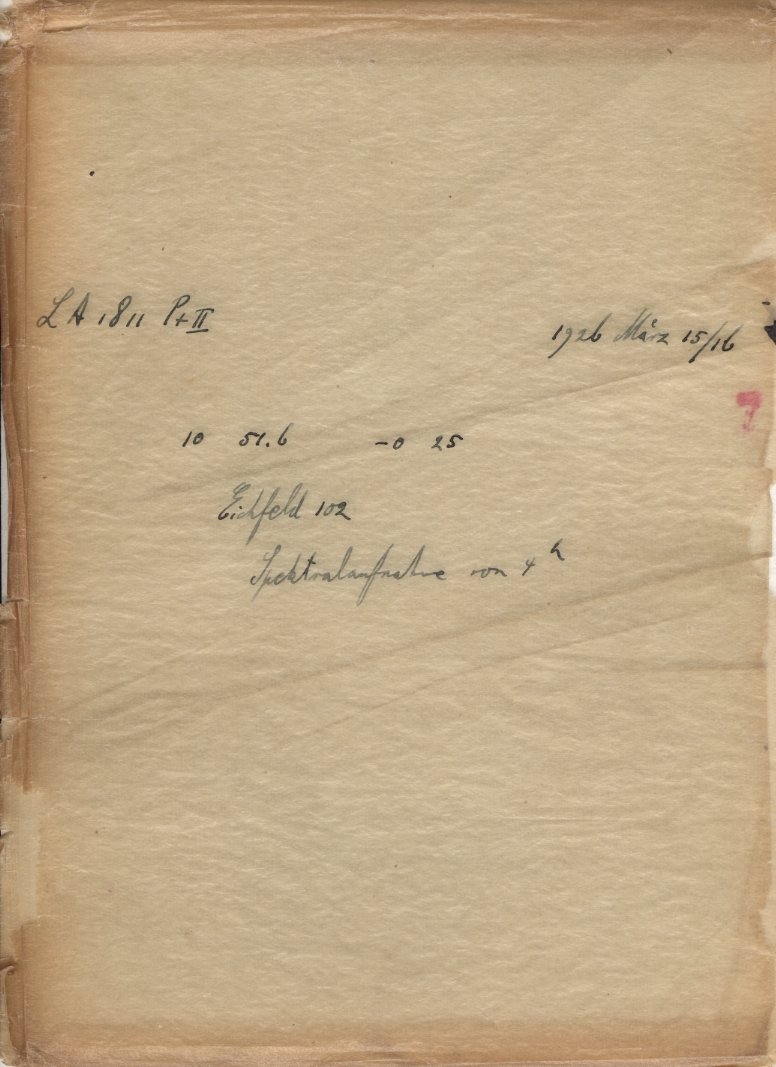 LA 1811 P+II
1926 März 15/16
7
10 51.6 -0 25
Eichfeld 102
Spektralaufnahme von 4h